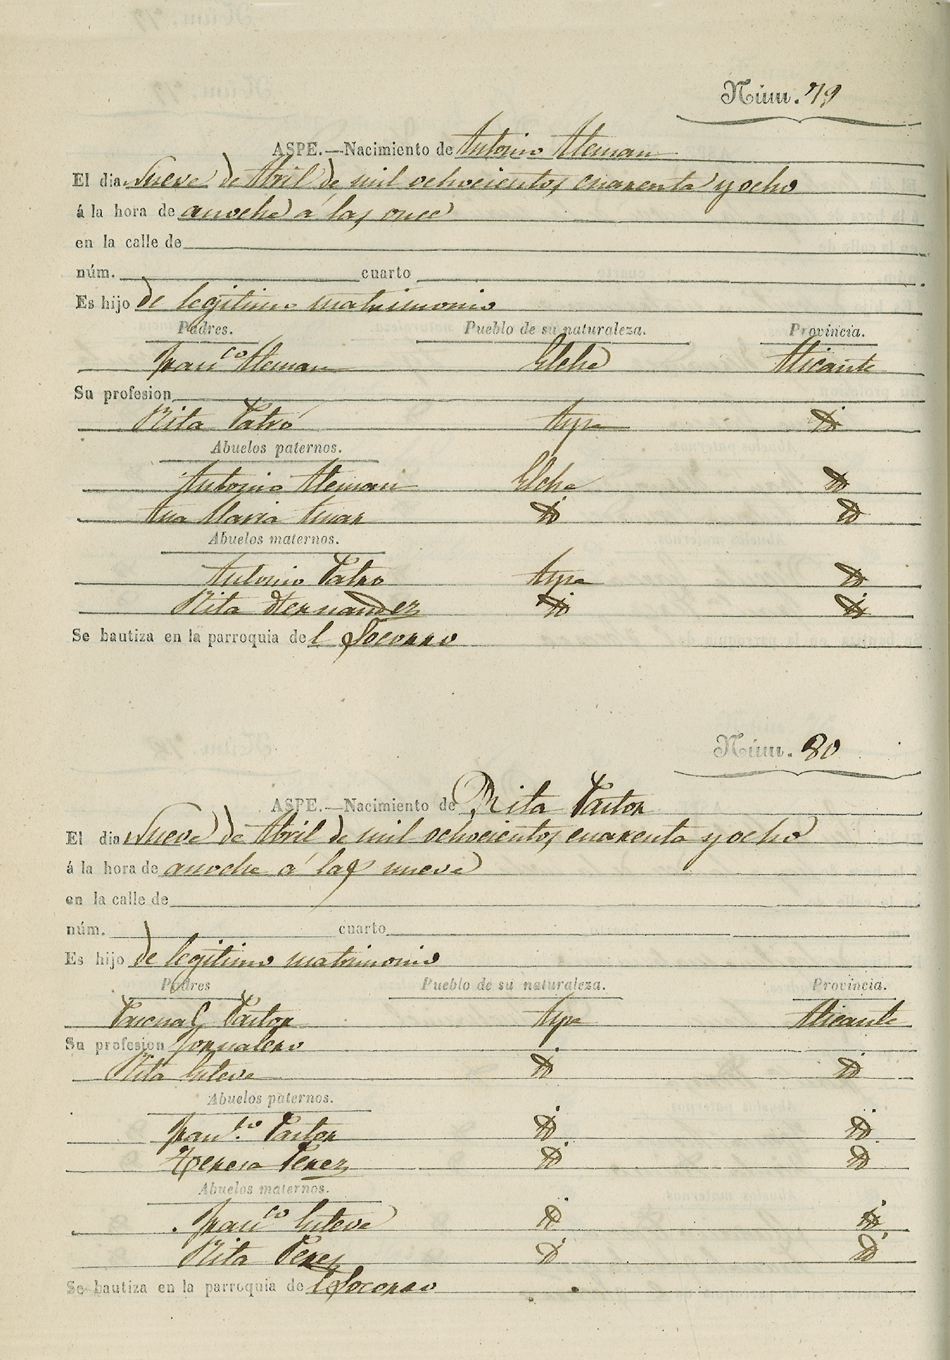 Núm. 79
ASPE.—Nacimiento de Antonio Aleman
El dia Nueve de Abril de mil ochocientos cuarenta y ocho
á la hora de anoche á las once
en la calle de
núm. cuarto
Es hijo de legitimo matrimonio
Padres. Pueblo de su naturaleza. Provincia.
Fran.co Aleman Elche Alicante
Su profesion
Rita Patró Aspe Id
Abuelos paternos.
Antonio Aleman Elche Id
Ana Maria Id Id
Abuelos maternos.
Antonio Patro Aspe Id
Rita Hernandez Id Id
Se bautiza en la parroquia del Socorro
Núm. 80
ASPE.—Nacimiento de Rita Pastor
El dia Nueve de Abril de mil ochocientos cuarenta y ocho
á la hora de anoche á las nueve
en la calle de
núm. cuarto
Es hijo de legitimo matrimonio
Padres Pueblo de su naturaleza. Provincia.
Pascual Pastor Aspe Alicante
Su profesion Jornalero
Rita Id Id
Abuelos paternos.
Fran.co Pastor Id Id
Teresa Perez Id Id
Abuelos maternos.
Fran.co Id Id
Rita Perez Id Id
Se bautiza en la parroquia del Socorro